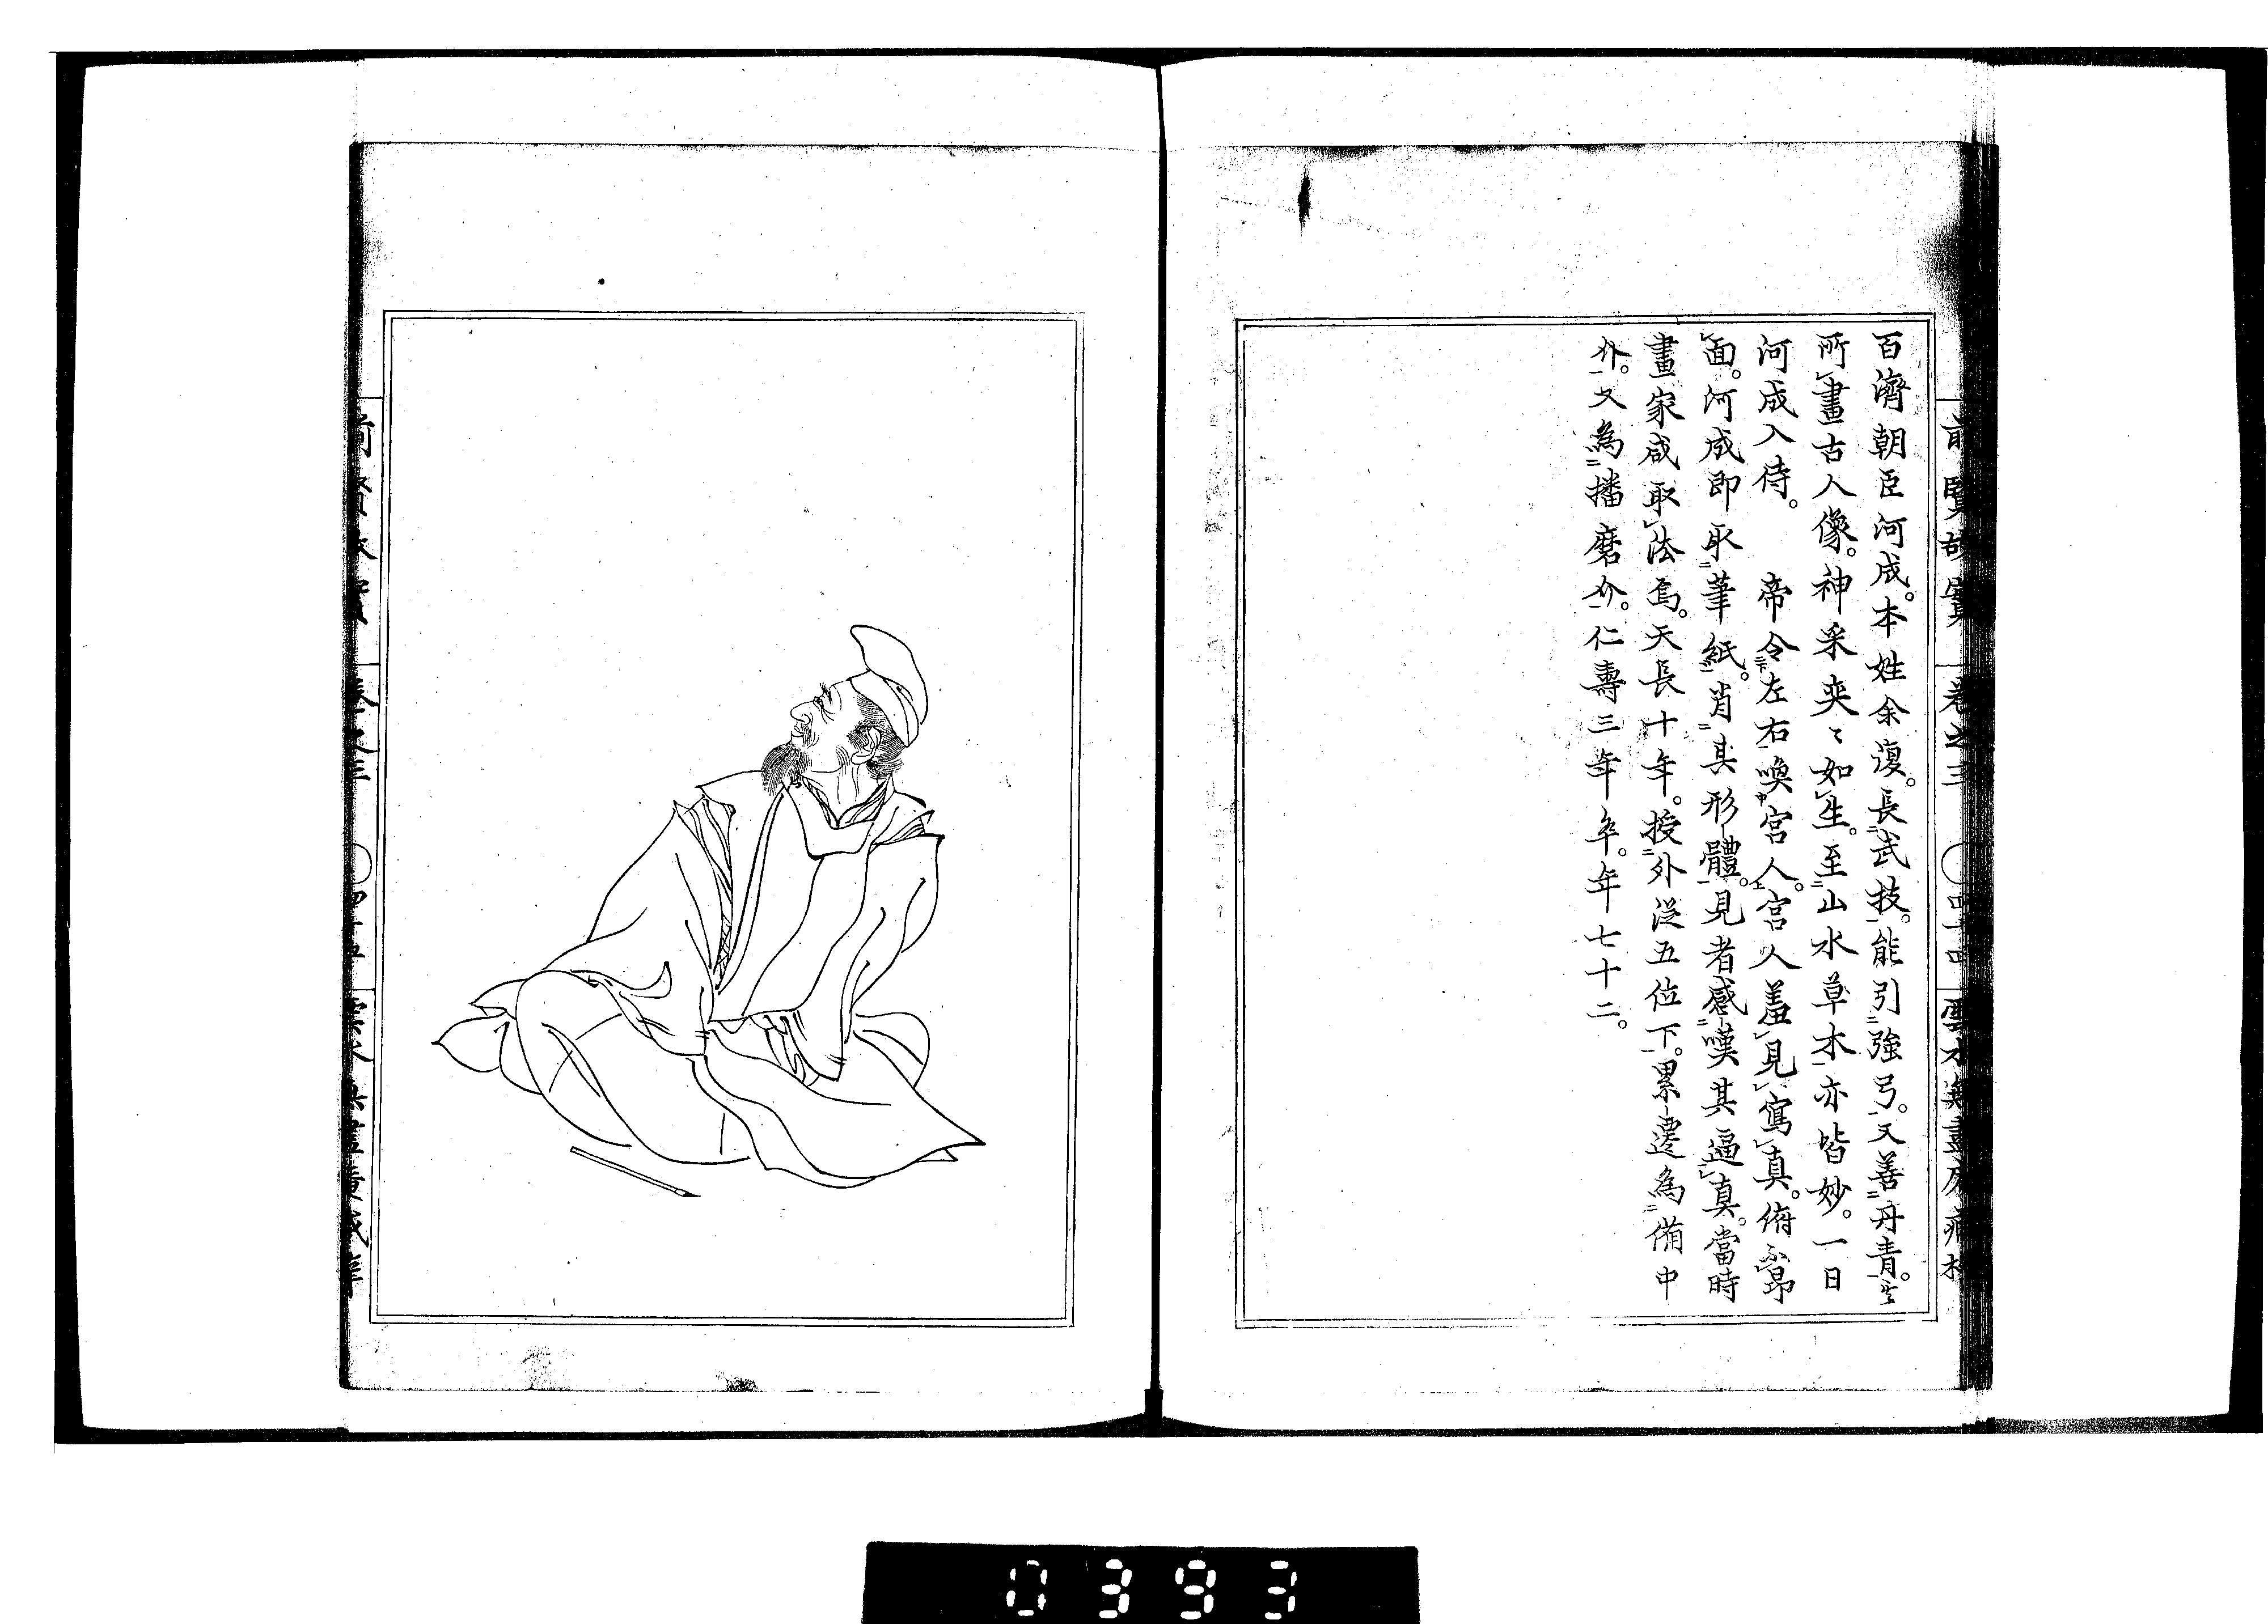 前賢故實 卷之三 〇 四十四 雲水無盡
百濟朝臣河成。本姓余復。長武技。能引強弓。又善丹青。其
所畫古人像。神采奕〻如生。至山水草木亦皆妙。一日
河成入侍。　帝令左右喚宮人。宮人羞見寫真。俯不昂
面。河成即取筆紙。肖其形體。見者感嘆其逼真。當時
畫家咸取法焉。天長十年。授外從五位下。累遷為備中
介。又為播磨介。仁壽三年卒。年七十二。
0393